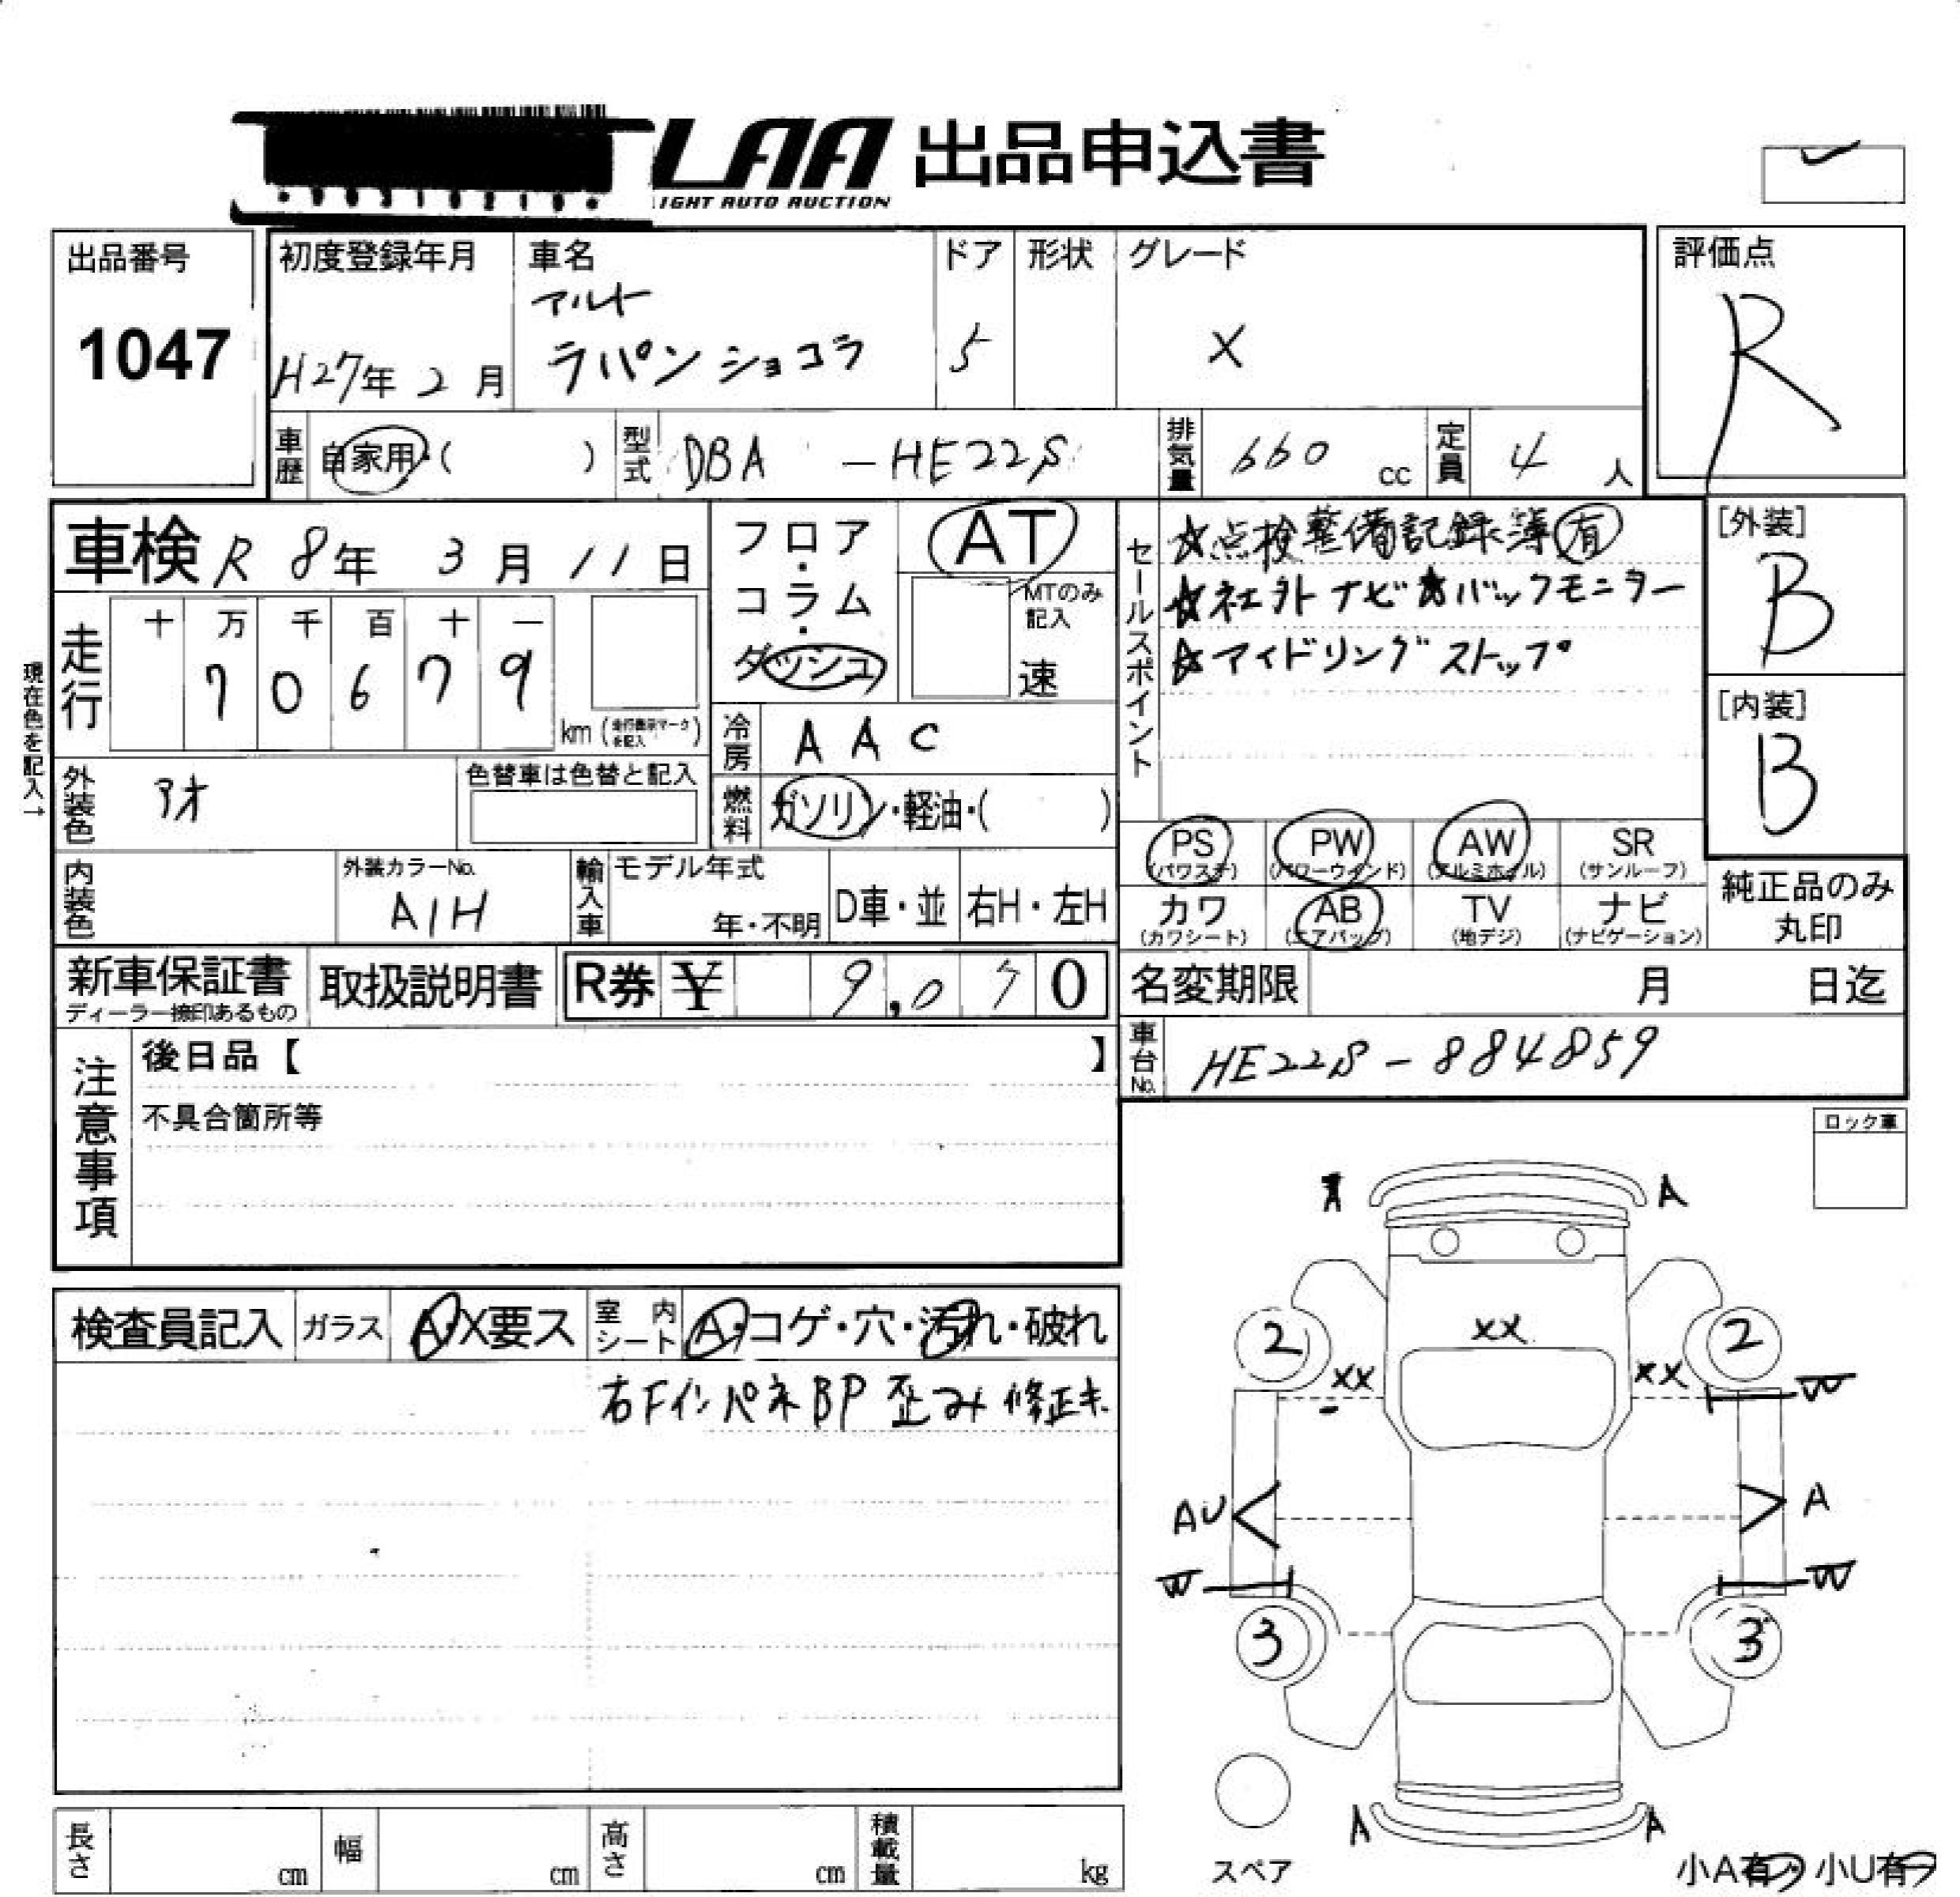 LAA 出品申込書
LIGHT AUTO AUCTION
出品番号
1047
初度登録年月
H27年 2月
車名
アルト
ラパン ショコラ
ドア
5
形状
グレード
X
評価点
R
車歴
自家用・( )
型式
DBA -HE22S
排気量
660 cc
定員
4 人
車検 R 8年 3月 11日
走行
十 万 千 百 十 一
7 0 6 7 9
km (走行数表示マークを記入)
現在色を記入→
フロア・コラム・ダッシュ
AT
MTのみ記入
速
冷房
AAC
燃料
ガソリン・軽油・( )
セールスポイント
☆点検整備記録簿有
☆社外ナビ☆バックモニター
☆アイドリングストップ
[外装]
B
[内装]
B
外装色
アオ
色替車は色替と記入
内装色
外装カラーNo.
A1H
輸入車
モデル年式
年・不明
D車・並
右H・左H
PS
(パワステ)
PW
(パワーウインド)
AW
(アルミホイル)
SR
(サンルーフ)
カワ
(カワシート)
AB
(エアバッグ)
TV
(地デジ)
ナビ
(ナビゲーション)
純正品のみ
丸印
新車保証書
ディーラー捺印あるもの
取扱説明書
R券 ¥ 9,070
名変期限 月 日迄
車台No.
HE22S-884859
注意事項
後日品【 】
不具合箇所等
ロック車
検査員記入
ガラス
A・X要ス
室内シート
A・コゲ・穴・汚れ・破れ
右Fインパネ BP 歪み 修正キ
A
A
2
XX
2
XX
XX
W
AU
A
W
W
3
3
A
A
スペア
小A有・小U有
長さ cm
幅 cm
高さ cm
積載量 kg